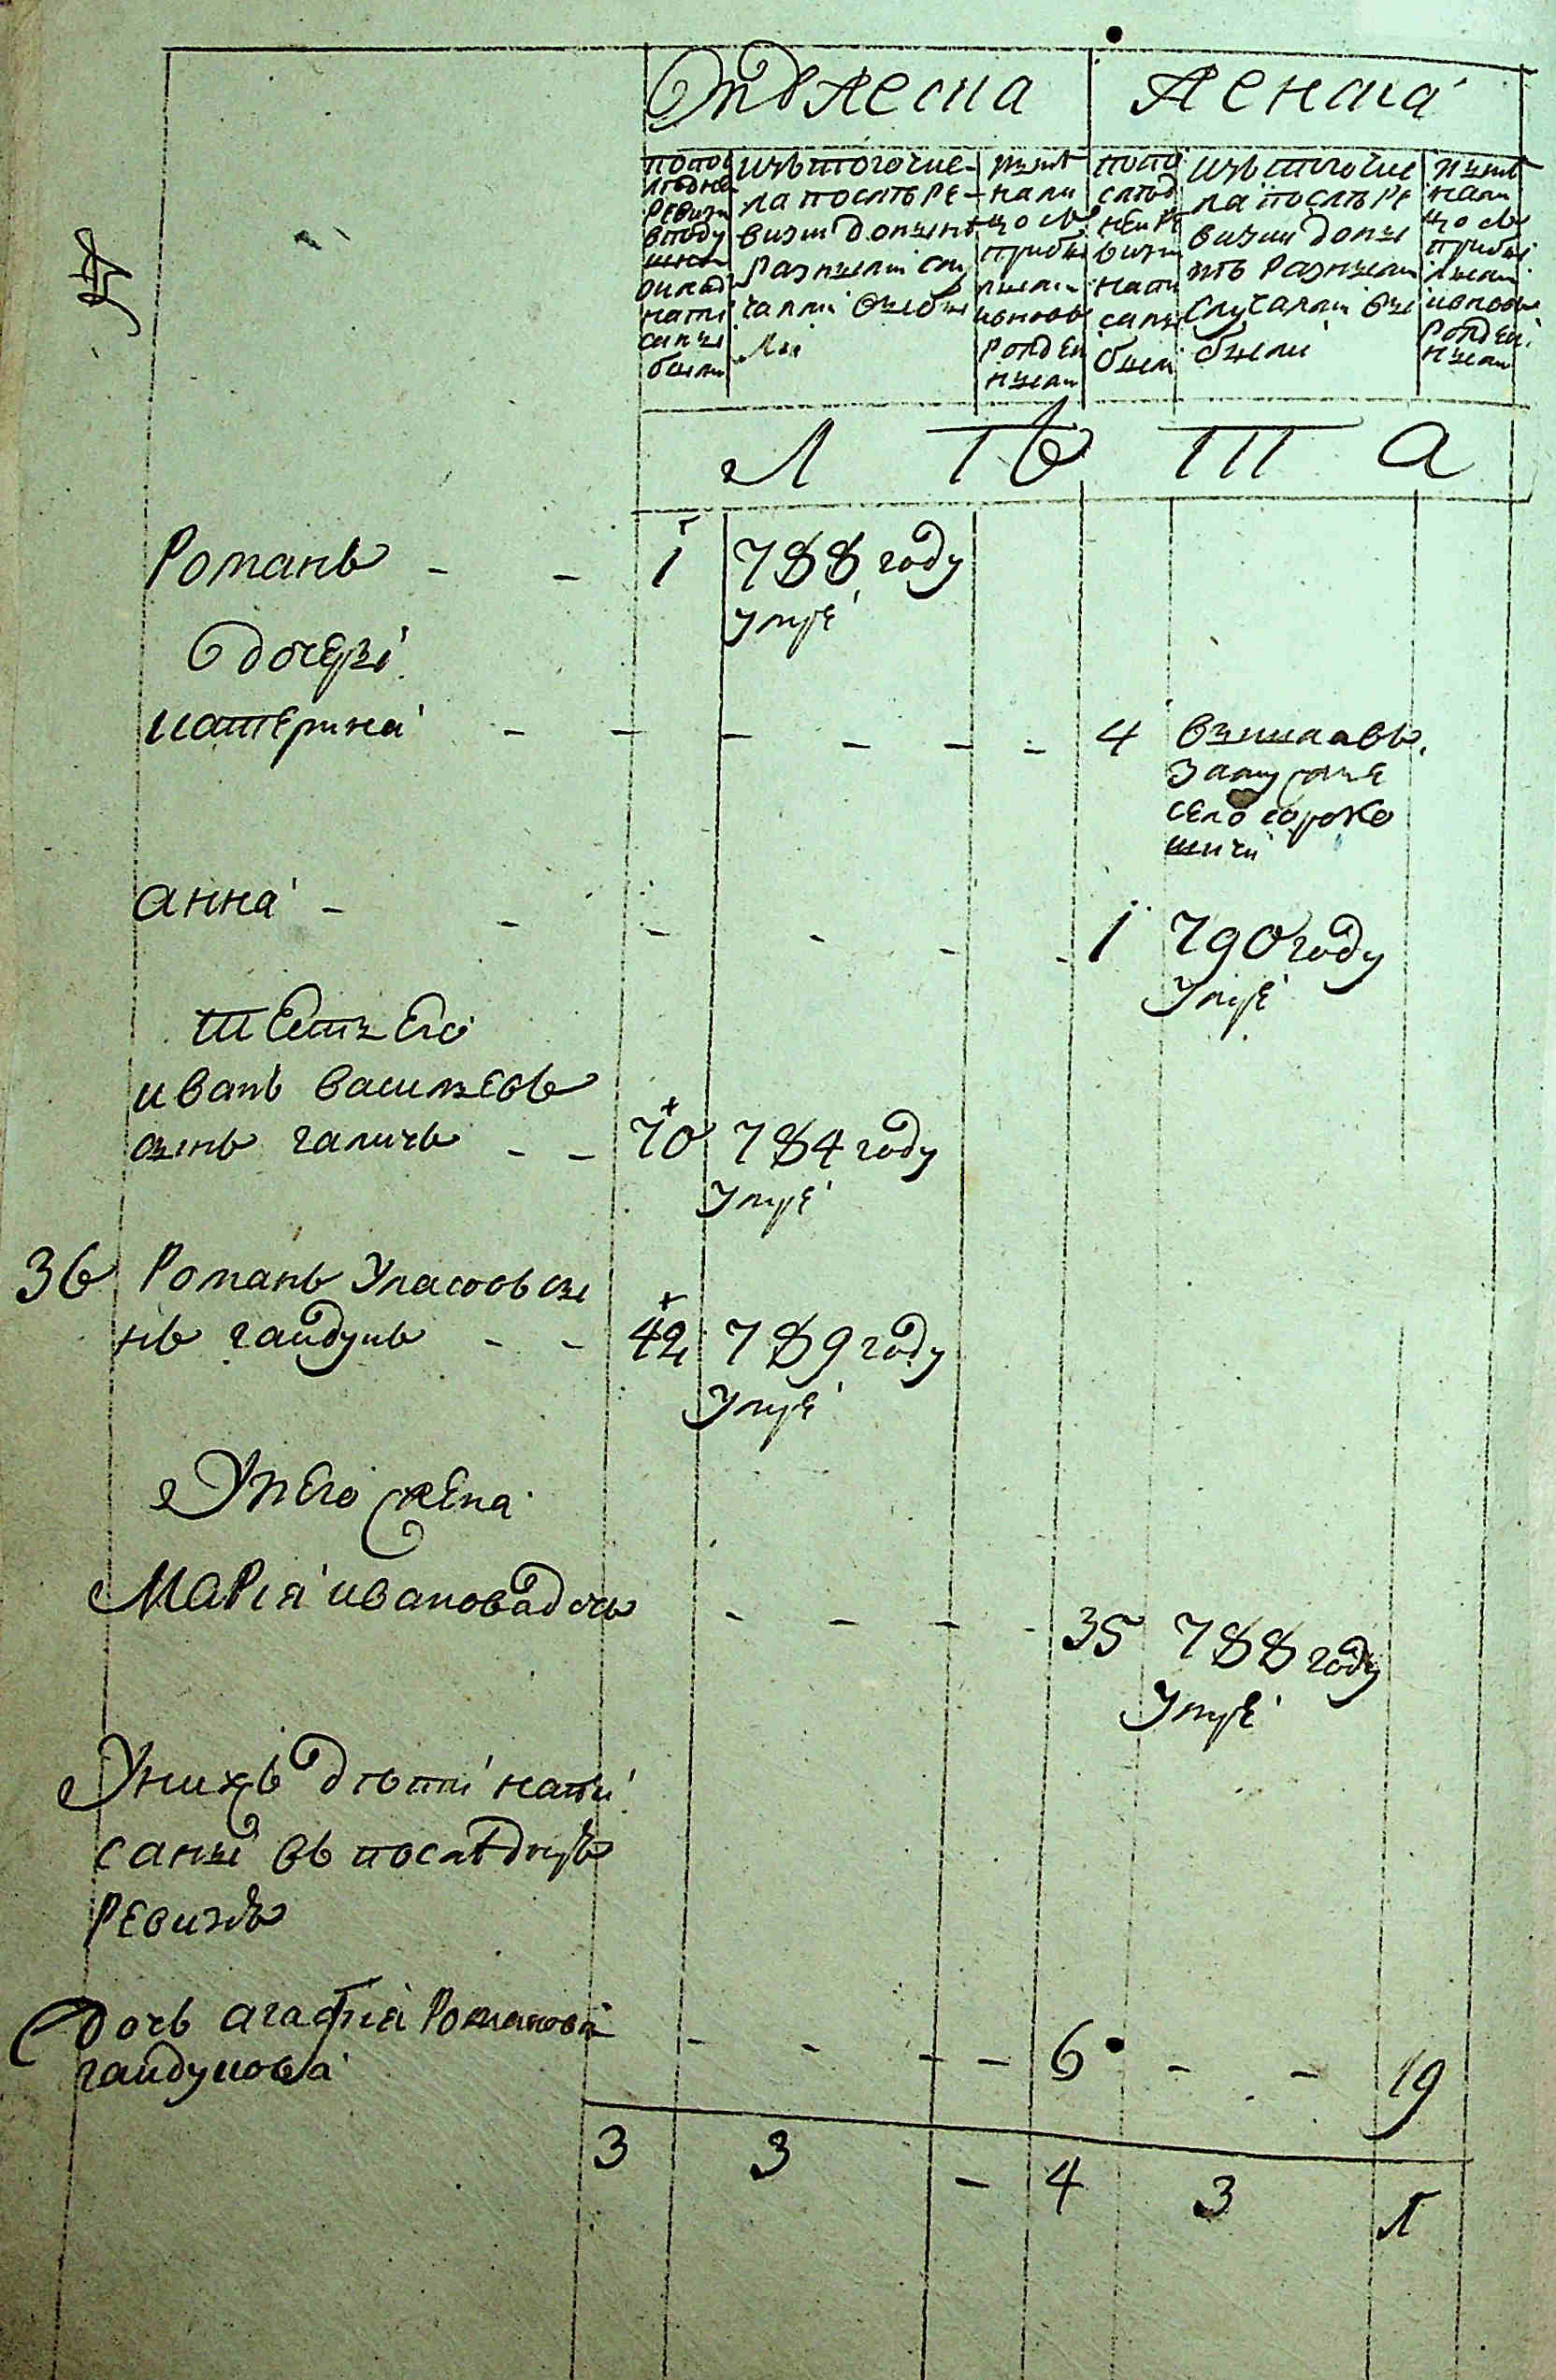 Мужеска
Женска
по по
следней
ревизи
в поду
шной
оклад
напи
саны
были
изъ того чис
ла после ре
визии доныне
разными слу
чаями выбы
ли
ныне
нали
цо съ
прибы
лыми
и вновь
рожден
ными
по по
след
ней ре
визи
напи
саны
были
изъ того чис
ла после ре
визии доны
нѣ разными
случаями вы
были
ныне
нали
цо съ
прибы
лыми
и вновь
рожден
ными
Лѣта
Романъ - - 1 788 году
умре
дочери
катерина - - - - - - 4 вышла въ
замужже
село сороко
шичи
анна - - - - - - 1 790 году
умре
тесть его
иванъ васильевъ
сынъ галичъ - - 70 784 году
умре
36 Романъ Уласовъ сы
нъ гайдукъ - - 42 789 году
умре
У него жена
Мария иванова дочь - - - - 35 788 году
умре
У нихъ дѣти напи
саны въ последнѣй
ревизѣ
дочь агафия Романова
гайдукова - - - - 6 - - 19
3 3 - 4 3 1